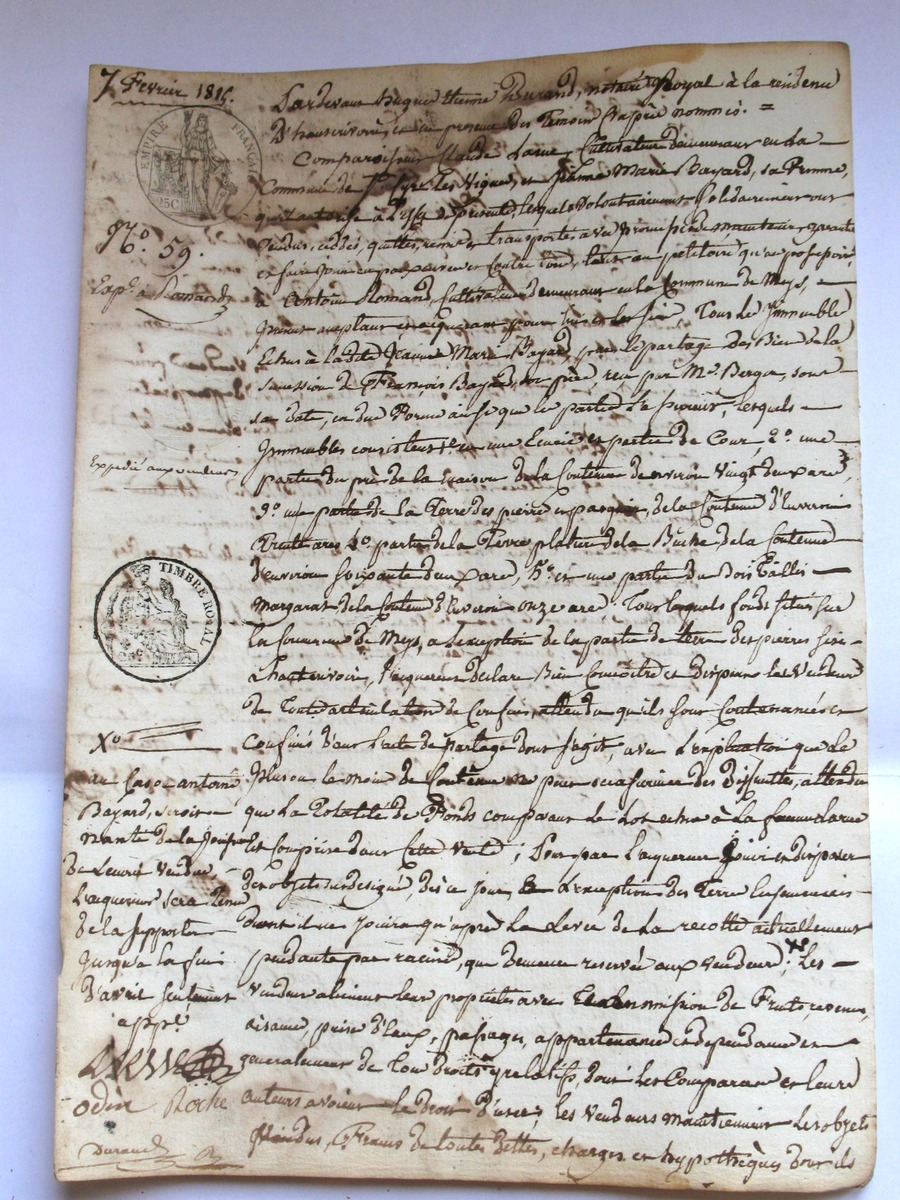 7 Fevrier 1815.
EMPIRE FRANÇAIS
25C
N.º 59.
Exp.é à Romand
Expedié aux vendeurs
TIMBRE ROYAL
Pardevant hugue Durand, notaire Royal à la residence
D'haute rivoire, en presence des Temoins Ci après nommés. =
Comparoissent Claude Larue, Cultivateur demeurant en La
Commune de St Cyr Les Vignes, et Jeanne Marie Bayard, sa Femme,
qu'il autorise à L'effet de presente, lesquels volontairement solidairement ont
vendus, cédés, quittés, remis et transportés, avec promesse de maintenir, garantir
et faire jouir en paix envers et Contre tous, tant au petitoire qu'au possessoire,
à Antoine Romand, Cultivateur demeurant en la Commune de Meys,
present acceptant et acquerant pour lui et les siens, Tous les Immeubles
Echus à la dite Jeanne Marie Bayard, par le partage des Biens de la
succession de François Bayard, son père, reçu par Me. Berger, sous
sa date, en due Forme ainsi que les parties l'assurent, lesquels
Immeubles consistent en une Ecurie et partie de Cour, 2.º une
partie du pré de la maison de la Contenue de environ vingt deux ares,
3.º une partie de la Terre des pierres, de la Contenue d'Environ
Trente ares 4.º partie de la Terre de la Bûche, de la Contenue
d'environ soixante deux ares, 5.º et une partie du Bois Taillis
Margarat de la Contenue d'Environ onze ares; Tous lesquels fonds situés sur
la Commune de Meys, à l'exception de la partie de terre des pierres sise
à haute rivoire, l'acquereur déclare Bien Connoître et dispense les vendeurs
de Toute articulation de Confins, attendu qu'ils sont Contenancés et
Confinés dans l'acte de partage dont s'agit, avec l'explication que le
plus ou le moins de Contenue ne pourra former des difficultés, attendu
que La Totalité de Fonds composant le Lot echu à La femme Larue
est comprise dans Cette vente; Pour par l'acquereur Jouir et disposer
des objets sus designés, dès ce jour, à L'exception des Terres Ensemencées
dont il ne jouira qu'après La Levée de La recolte actuellement
pendante par racine, que demeure reservée aux vendeurs; Xº Les
vendeurs alienent leur proprietés avec de Fruits, revenus,
aisance, prise d'Eaux, passages, appartenance et dependance et
generalement de Tous droits y relatifs, dont Les Comparans et leurs
auteurs avoient le droit d'user; les vendeurs maintiennent les objets
vendus, Francs de toutes Dettes, charges et hypothèques dont ils
Xº
au cas ou antoine
Bayard, seroit
de la Jouissance
de L'ecurie vendue,
L'acquereur sera Tenu
de la supporter
Jusqu'à la fin
d'avril seulement
app.é
LARUE
odin Roche
Durand